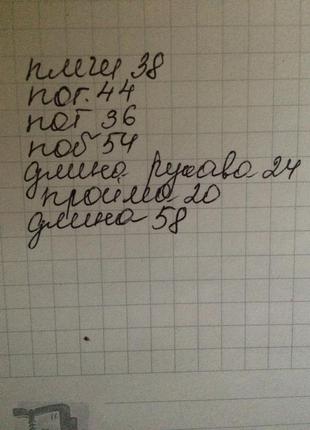 плечи 38
пог. 44
пот 36
поб 54
длина рукава 24
пройма 20
длина 58